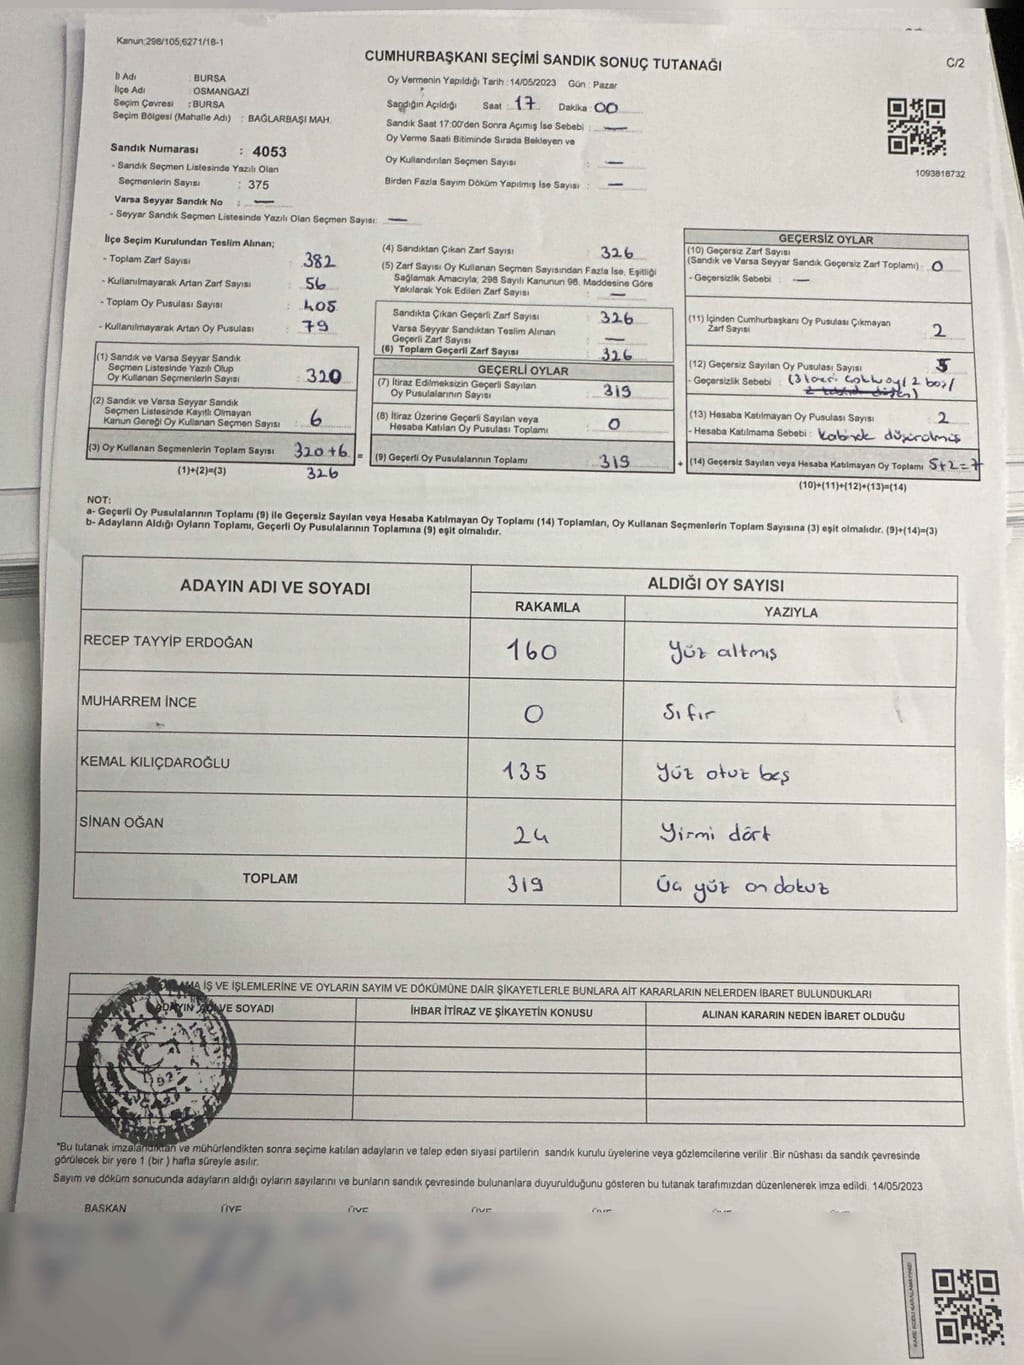 Kanun;298/105;6271/18-1
CUMHURBAŞKANI SEÇİMİ SANDIK SONUÇ TUTANAĞI
C/2
İl Adı : BURSA
İlçe Adı : OSMANGAZİ
Seçim Çevresi : BURSA
Seçim Bölgesi (Mahalle Adı) : BAĞLARBAŞI MAH.
Sandık Numarası : 4053
- Sandık Seçmen Listesinde Yazılı Olan
Seçmenlerin Sayısı : 375
Varsa Seyyar Sandık No : —
- Seyyar Sandık Seçmen Listesinde Yazılı Olan Seçmen Sayısı: —
Oy Vermenin Yapıldığı Tarih : 14/05/2023 Gün : Pazar
Sandığın Açıldığı Saat : 17 Dakika : 00
Sandık Saat 17:00'den Sonra Açımış İse Sebebi : —
Oy Verme Saati Bitiminde Sırada Bekleyen ve
Oy Kullandırılan Seçmen Sayısı : —
Birden Fazla Sayım Döküm Yapılmış İse Sayısı : —
1093818732
İlçe Seçim Kurulundan Teslim Alınan;
- Toplam Zarf Sayısı : 382
- Kullanılmayarak Artan Zarf Sayısı : 56
- Toplam Oy Pusulası Sayısı : 405
- Kullanılmayarak Artan Oy Pusulası : 79
(1) Sandık ve Varsa Seyyar Sandık
Seçmen Listesinde Yazılı Olup
Oy Kullanan Seçmenlerin Sayısı : 320
(2) Sandık ve Varsa Seyyar Sandık
Seçmen Listesinde Kayıtlı Olmayan
Kanun Gereği Oy Kullanan Seçmen Sayısı : 6
(3) Oy Kullanan Seçmenlerin Toplam Sayısı 320+6 =
(1)+(2)=(3) 326
(4) Sandıktan Çıkan Zarf Sayısı : 326
(5) Zarf Sayısı Oy Kullanan Seçmen Sayısından Fazla İse, Eşitliği
Sağlamak Amacıyla, 298 Sayılı Kanunun 98. Maddesine Göre
Yakılarak Yok Edilen Zarf Sayısı : —
Sandıkta Çıkan Geçerli Zarf Sayısı : 326
Varsa Seyyar Sandıktan Teslim Alınan
Geçerli Zarf Sayısı : —
(6) Toplam Geçerli Zarf Sayısı : 326
GEÇERLİ OYLAR
(7) İtiraz Edilmeksizin Geçerli Sayılan
Oy Pusulalarının Sayısı : 319
(8) İtiraz Üzerine Geçerli Sayılan veya
Hesaba Katılan Oy Pusulası Toplamı : 0
(9) Geçerli Oy Pusulalarının Toplamı : 319 +
GEÇERSİZ OYLAR
(10) Geçersiz Zarf Sayısı
(Sandık ve Varsa Seyyar Sandık Geçersiz Zarf Toplamı) : 0
- Geçersizlik Sebebi : —
(11) İçinden Cumhurbaşkanı Oy Pusulası Çıkmayan
Zarf Sayısı : 2
(12) Geçersiz Sayılan Oy Pusulası Sayısı : 5
- Geçersizlik Sebebi :
(13) Hesaba Katılmayan Oy Pusulası Sayısı : 2
- Hesaba Katılmama Sebebi : Kabinde düşürülmüş
(14) Geçersiz Sayılan veya Hesaba Katılmayan Oy Toplamı 5+2=7
(10)+(11)+(12)+(13)=(14)
NOT:
a- Geçerli Oy Pusulalarının Toplamı (9) ile Geçersiz Sayılan veya Hesaba Katılmayan Oy Toplamı (14) Toplamları, Oy Kullanan Seçmenlerin Toplam Sayısına (3) eşit olmalıdır. (9)+(14)=(3)
b- Adayların Aldığı Oyların Toplamı, Geçerli Oy Pusulalarının Toplamına (9) eşit olmalıdır.
ADAYIN ADI VE SOYADI ALDIĞI OY SAYISI
RAKAMLA YAZIYLA
RECEP TAYYİP ERDOĞAN 160 Yüz altmış
MUHARREM İNCE 0 Sıfır
KEMAL KILIÇDAROĞLU 135 Yüz otuz beş
SİNAN OĞAN 24 Yirmi dört
TOPLAM 319 Üç yüz on dokuz
İŞ VE İŞLEMLERİNE VE OYLARIN SAYIM VE DÖKÜMÜNE DAİR ŞİKAYETLERLE BUNLARA AİT KARARLARIN NELERDEN İBARET BULUNDUKLARI
ADAYIN ADI VE SOYADI İHBAR İTİRAZ VE ŞİKAYETİN KONUSU ALINAN KARARIN NEDEN İBARET OLDUĞU
*Bu tutanak imzalandıktan ve mühürlendikten sonra seçime katılan adayların ve talep eden siyasi partilerin sandık kurulu üyelerine veya gözlemcilerine verilir .Bir nüshası da sandık çevresinde
görülecek bir yere 1 (bir ) hafta süreyle asılır.
Sayım ve döküm sonucunda adayların aldığı oyların sayılarını ve bunların sandık çevresinde bulunanlara duyurulduğunu gösteren bu tutanak tarafımızdan düzenlenerek imza edildi. 14/05/2023
BAŞKAN ÜYE ÜYE ÜYE ÜYE